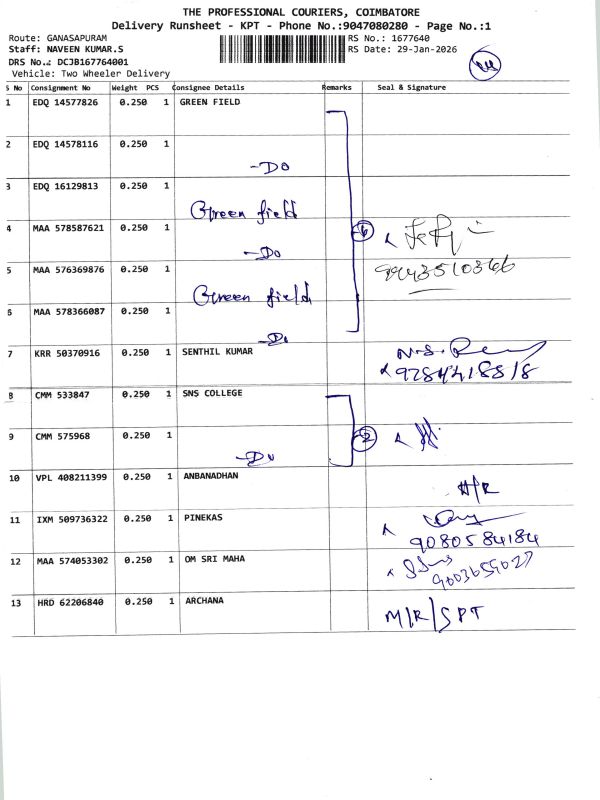 THE PROFESSIONAL COURIERS, COIMBATORE
Delivery Runsheet - KPT - Phone No.:9047080280 - Page No.:1
Route: GANASAPURAM
RS No.: 1677640
Staff: NAVEEN KUMAR.S
RS Date: 29-Jan-2026
DRS No.: DCJB167764001
Vehicle: Two Wheeler Delivery
S No Consignment No Weight PCS Consignee Details Remarks Seal & Signature
1 EDQ 14577826 0.250 1 GREEN FIELD
2 EDQ 14578116 0.250 1
-Do
3 EDQ 16129813 0.250 1
Green field
4 MAA 578587621 0.250 1 6
-Do
5 MAA 576369876 0.250 1
Green field
6 MAA 578366087 0.250 1
-Do
7 KRR 50370916 0.250 1 SENTHIL KUMAR
8 CMM 533847 0.250 1 SNS COLLEGE
9 CMM 575968 0.250 1 2
-Do
10 VPL 408211399 0.250 1 ANBANADHAN
11 IXM 509736322 0.250 1 PINEKAS
9080584184
12 MAA 574053302 0.250 1 OM SRI MAHA
13 HRD 62206840 0.250 1 ARCHANA
M/R/SPT